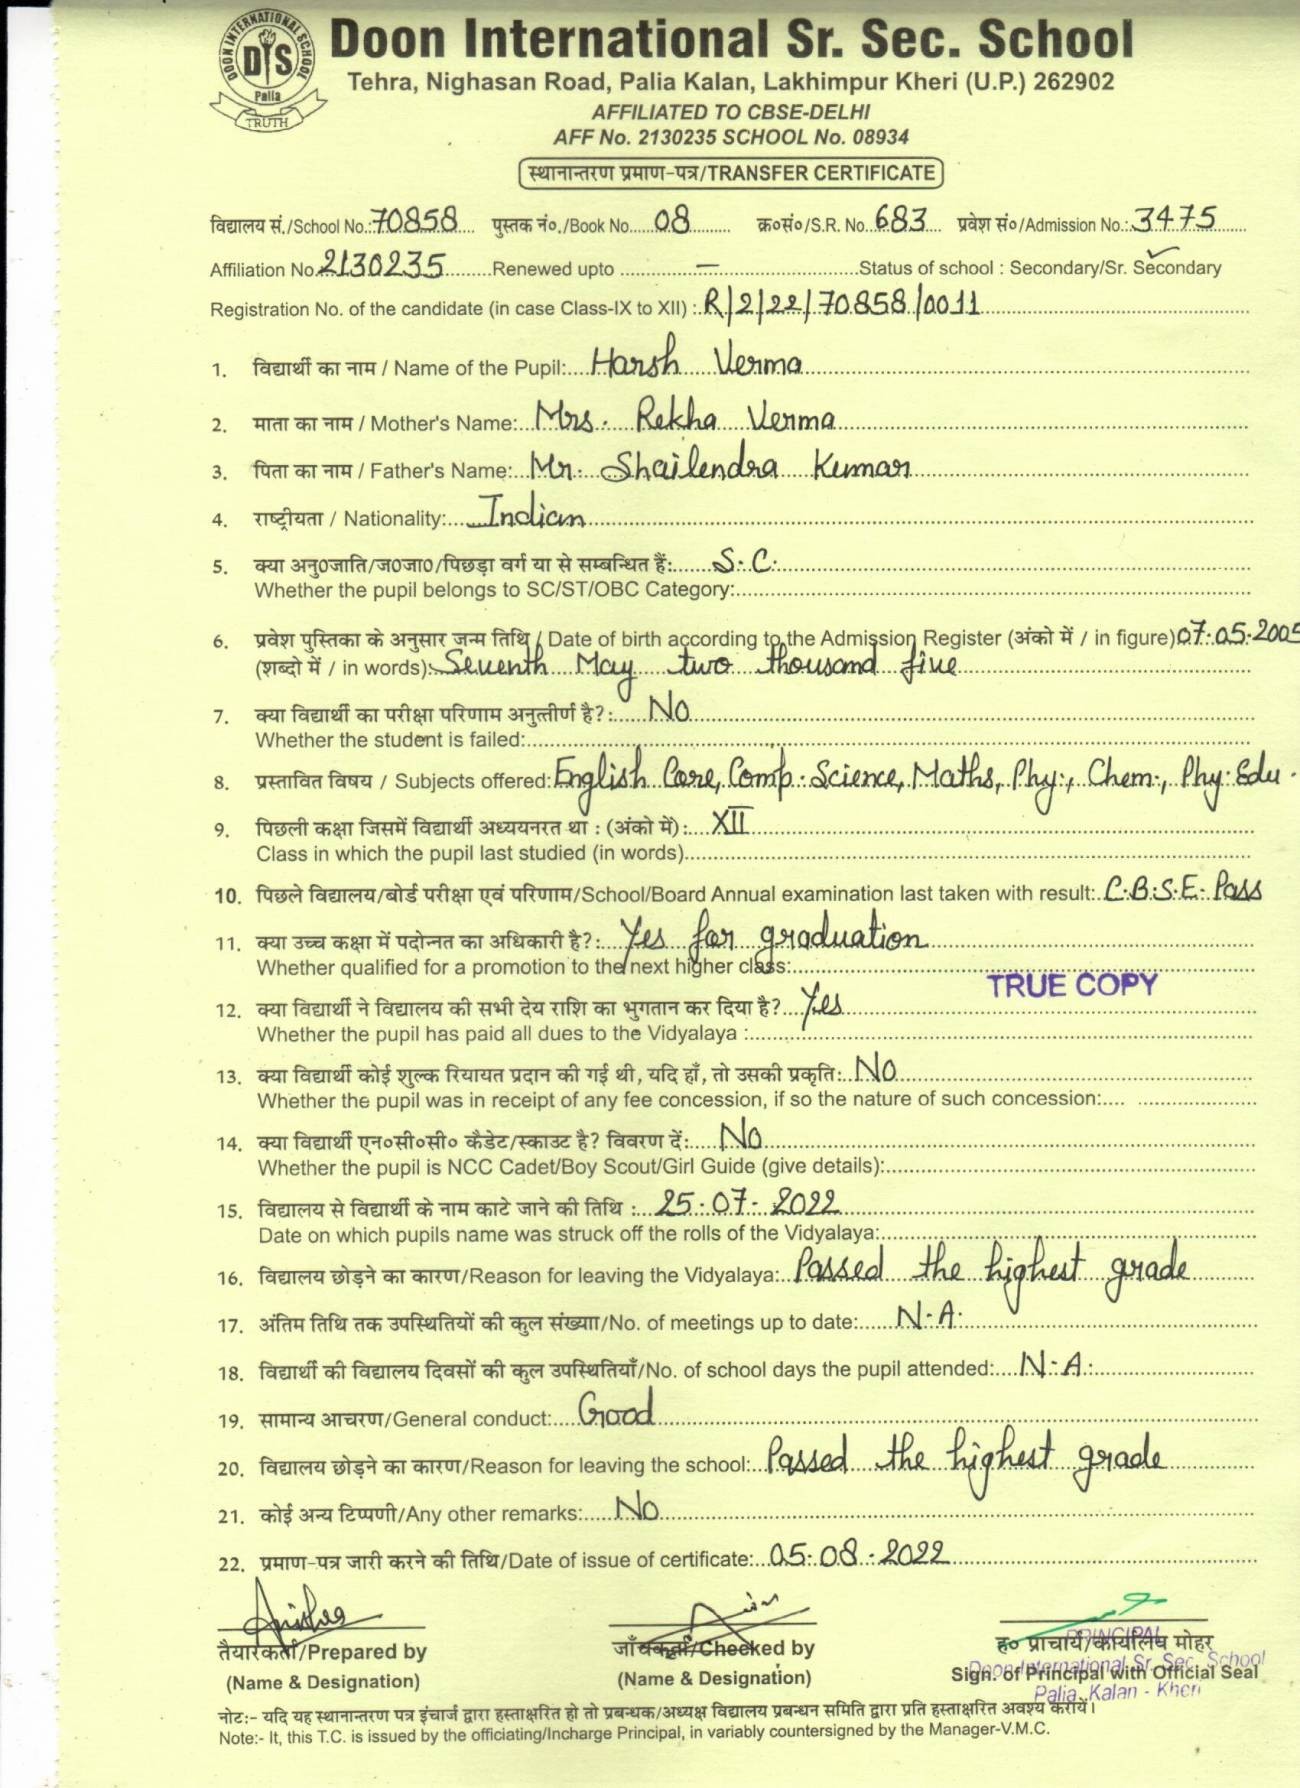 DOON INTERNATIONAL SCHOOL
DIS
Palia
TRUTH
Doon International Sr. Sec. School
Tehra, Nighasan Road, Palia Kalan, Lakhimpur Kheri (U.P.) 262902
AFFILIATED TO CBSE-DELHI
AFF No. 2130235 SCHOOL No. 08934
स्थानान्तरण प्रमाण-पत्र/TRANSFER CERTIFICATE
विद्यालय सं./School No.:70858 पुस्तक नं०./Book No.....08 क्र०सं०/S.R. No. 683 प्रवेश सं०/Admission No.: 3475
Affiliation No. 2130235 Renewed upto — Status of school : Secondary/Sr. Secondary
Registration No. of the candidate (in case Class-IX to XII) : R/2/22/70858/0011
1. विद्यार्थी का नाम / Name of the Pupil: Harsh Verma
2. माता का नाम / Mother's Name: Mrs. Rekha Verma
3. पिता का नाम / Father's Name: Mr. Shailendra Kumar
4. राष्ट्रीयता / Nationality: Indian
5. क्या अनु0जाति/ज0जा0/पिछड़ा वर्ग या से सम्बन्धित हैं: S.C.
Whether the pupil belongs to SC/ST/OBC Category:
6. प्रवेश पुस्तिका के अनुसार जन्म तिथि / Date of birth according to the Admission Register (अंको में / in figure) 07.05.2005
(शब्दो में / in words): Seventh May two thousand five
7. क्या विद्यार्थी का परीक्षा परिणाम अनुत्तीर्ण है?: No
Whether the student is failed:
8. प्रस्तावित विषय / Subjects offered: English Core, Comp. Science, Maths, Phy., Chem., Phy. Edu.
9. पिछली कक्षा जिसमें विद्यार्थी अध्ययनरत था : (अंको में): XII
Class in which the pupil last studied (in words)
10. पिछले विद्यालय/बोर्ड परीक्षा एवं परिणाम/School/Board Annual examination last taken with result: C.B.S.E. Pass
11. क्या उच्च कक्षा में पदोन्नत का अधिकारी है?: Yes for graduation
Whether qualified for a promotion to the next higher class:
TRUE COPY
12. क्या विद्यार्थी ने विद्यालय की सभी देय राशि का भुगतान कर दिया है? Yes
Whether the pupil has paid all dues to the Vidyalaya :
13. क्या विद्यार्थी कोई शुल्क रियायत प्रदान की गई थी, यदि हाँ, तो उसकी प्रकृति: No
Whether the pupil was in receipt of any fee concession, if so the nature of such concession:
14. क्या विद्यार्थी एन०सी०सी० कैडेट/स्काउट है? विवरण दें: No
Whether the pupil is NCC Cadet/Boy Scout/Girl Guide (give details):
15. विद्यालय से विद्यार्थी के नाम काटे जाने की तिथि : 25-07-2022
Date on which pupils name was struck off the rolls of the Vidyalaya:
16. विद्यालय छोड़ने का कारण/Reason for leaving the Vidyalaya: Passed the highest grade
17. अंतिम तिथि तक उपस्थितियों की कुल संख्याा/No. of meetings up to date: N.A.
18. विद्यार्थी की विद्यालय दिवसों की कुल उपस्थितियाँ/No. of school days the pupil attended: N.A.
19. सामान्य आचरण/General conduct: Good
20. विद्यालय छोड़ने का कारण/Reason for leaving the school: Passed the highest grade
21. कोई अन्य टिप्पणी/Any other remarks: No
22. प्रमाण-पत्र जारी करने की तिथि/Date of issue of certificate: 05-08-2022
तैयारकर्ता/Prepared by जाँचकर्ता/Checked by ह० प्राचार्य/कार्यालय मोहर
PRINCIPAL
Doon International Sr. Sec. School
(Name & Designation) (Name & Designation) Sign. of Principal with Official Seal
Palia Kalan - Kheri
नोट:- यदि यह स्थानान्तरण पत्र इंचार्ज द्वारा हस्ताक्षरित हो तो प्रबन्धक/अध्यक्ष विद्यालय प्रबन्धन समिति द्वारा प्रति हस्ताक्षरित अवश्य करायें।
Note:- It, this T.C. is issued by the officiating/Incharge Principal, in variably countersigned by the Manager-V.M.C.